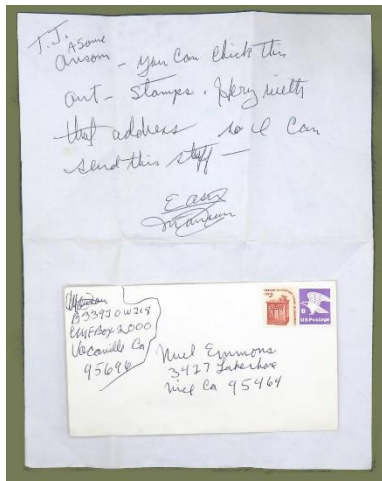 T.J.
A Some
ansom - you can chick this
out - stamps. Hery with
that address so I can
send this stuff -
Easy
Manson
B33920 W218
CMF Box 2000
Vacaville Ca
95696
US Postage
Nuel Emmons
3427 Lakeshore
Nice Ca 95464